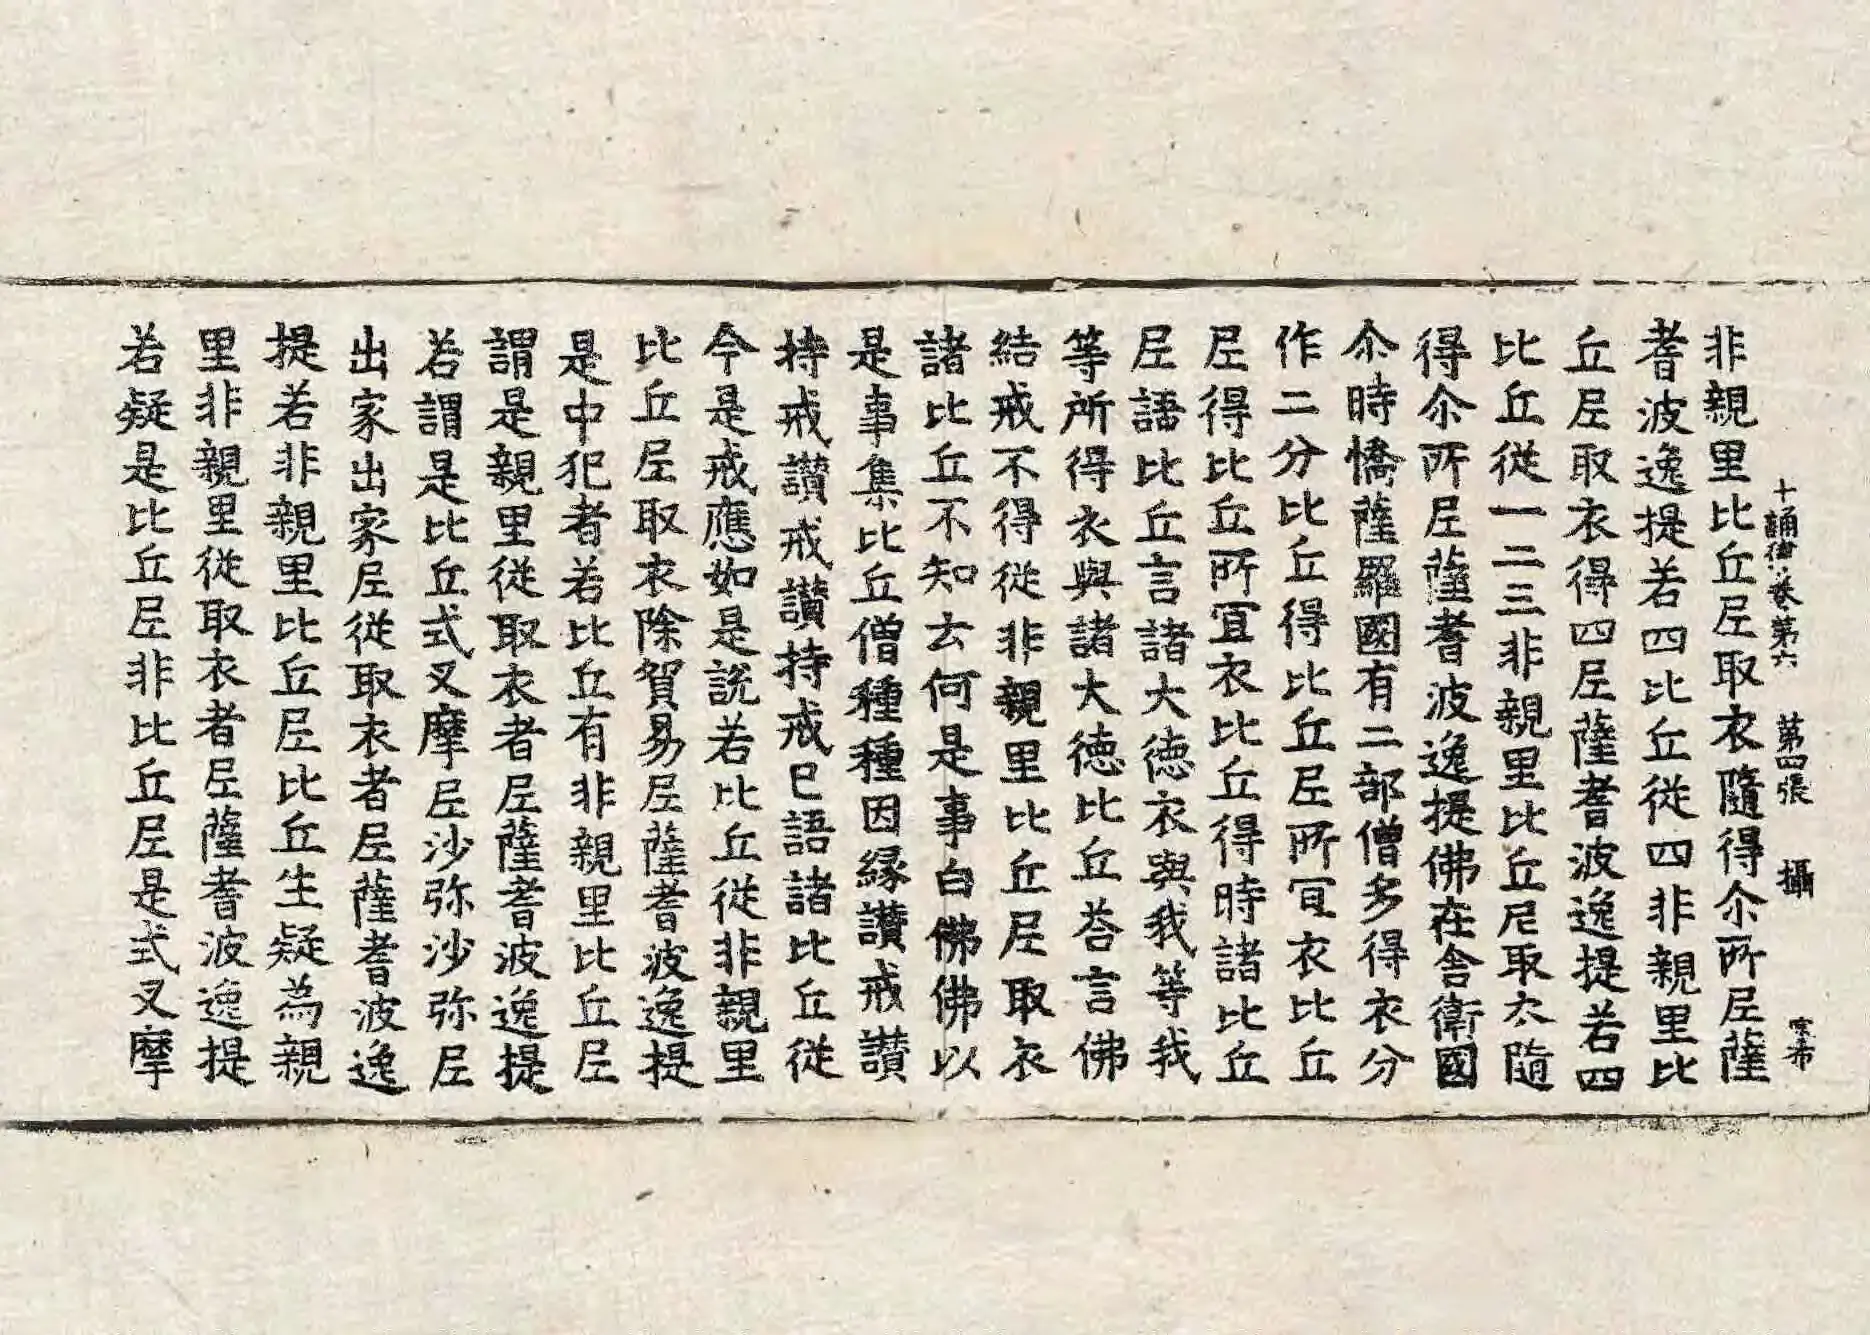 十誦律卷第六 第四張 攝
非親里比丘尼取衣隨得尒所尼薩
耆波逸提若四比丘從四非親里比
丘尼取衣得四尼薩耆波逸提若四
比丘從一二三非親里比丘尼取衣隨
得尒所尼薩耆波逸提佛在舍衛國
尒時憍薩羅國有二部僧多得衣分
作二分比丘得比丘尼所冝衣比丘
尼得比丘所冝衣比丘得時諸比丘
尼語比丘言諸大德衣與我等我
等所得衣與諸大德比丘荅言佛
結戒不得從非親里比丘尼取衣
諸比丘不知云何是事白佛佛以
是事集比丘僧種種因緣讃戒讃
持戒讃戒讃持戒已語諸比丘從
今是戒應如是說若比丘從非親里
比丘尼取衣除貿易尼薩耆波逸提
是中犯者若比丘有非親里比丘尼
謂是親里從取衣者尼薩耆波逸提
若謂是比丘式叉摩尼沙弥沙弥尼
出家出家尼從取衣者尼薩耆波逸
提若非親里比丘尼比丘生疑為親
里非親里從取衣者尼薩耆波逸提
若疑是比丘尼非比丘尼是式叉摩